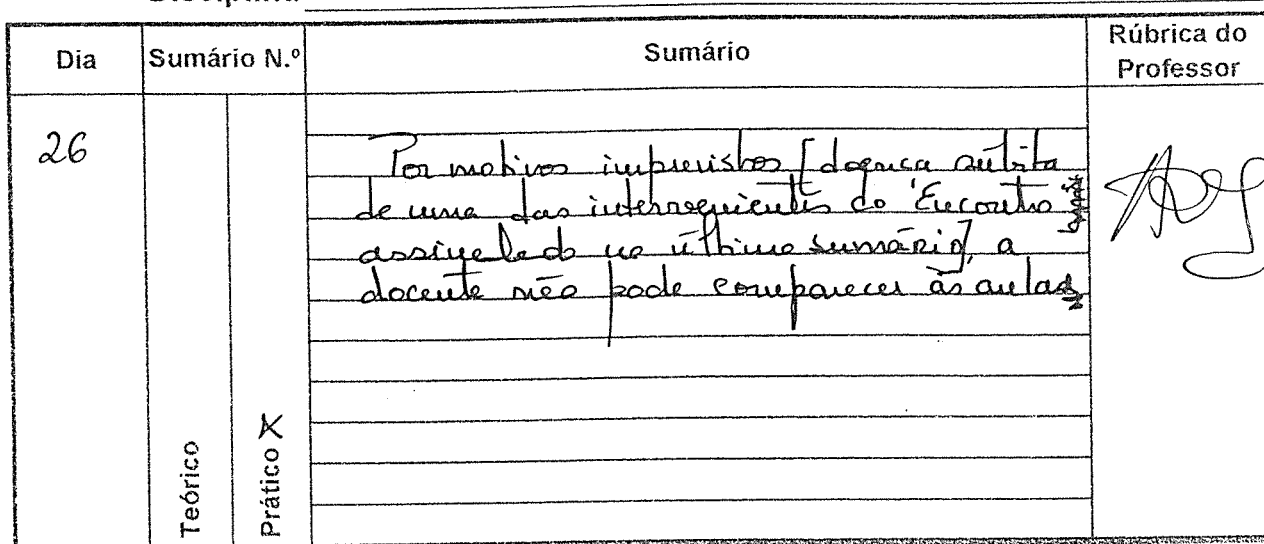 Dia
Sumário N.º
Sumário
Rúbrica do
Professor
26
Por motivos imprevistos [doença súbita
de uma das intervenientes do 'Encontro'
assinalado no último sumário], a
docente não pode comparecer às aulas
Teórico
Prático X